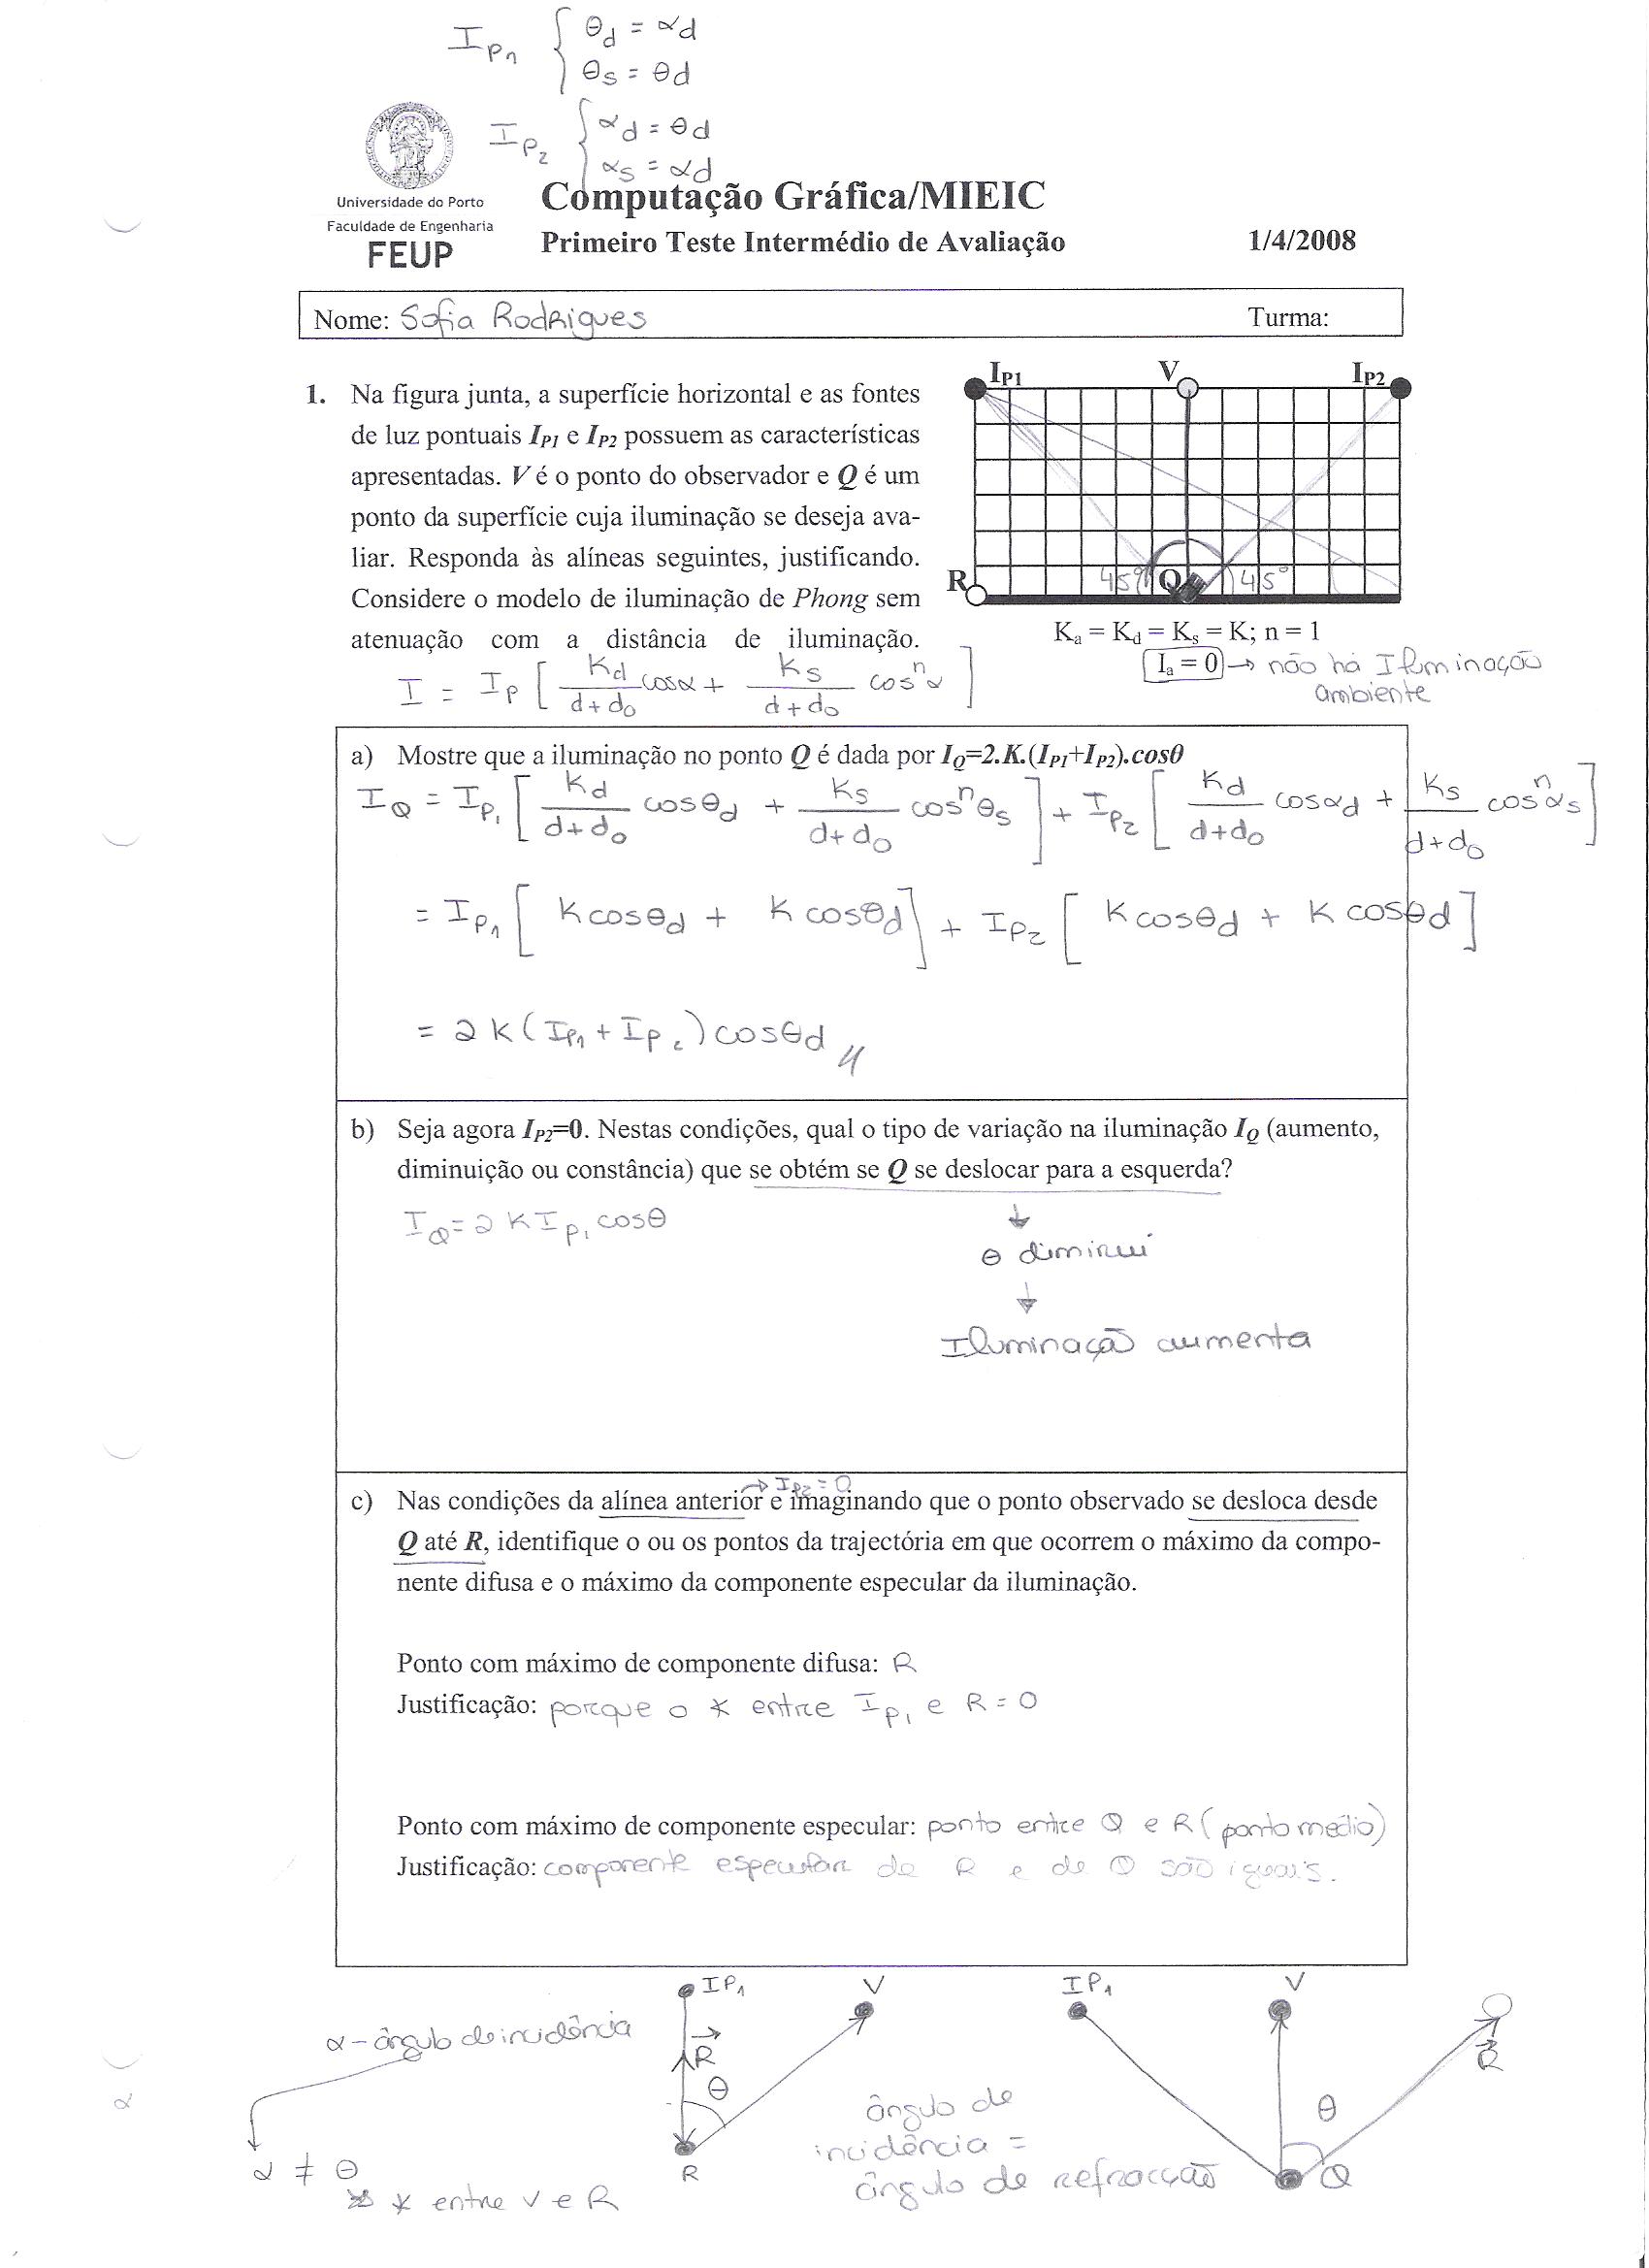 I P1 { θd = αd
θs = θd
I P2 { αd = θd
αs = αd
Universidade do Porto
Faculdade de Engenharia
FEUP
Computação Gráfica/MIEIC
Primeiro Teste Intermédio de Avaliação 1/4/2008
Nome: Sofia Rodrigues Turma:
1. Na figura junta, a superfície horizontal e as fontes
de luz pontuais IP1 e IP2 possuem as características
apresentadas. V é o ponto do observador e Q é um
ponto da superfície cuja iluminação se deseja ava-
liar. Responda às alíneas seguintes, justificando.
Considere o modelo de iluminação de Phong sem
atenuação com a distância de iluminação.
IP1 V IP2
R 45º Q 45º
Ka = Kd = Ks = K; n = 1
Ia = 0 → não há Iluminação
ambiente
I = Ip [ Kd/(d+do) cosα + Ks/(d+do) cosⁿα ]
a) Mostre que a iluminação no ponto Q é dada por IQ=2.K.(IP1+IP2).cosθ
IQ = IP1 [ Kd/(d+do) cosθd + Ks/(d+do) cosⁿθs ] + IP2 [ Kd/(d+do) cosαd + Ks/(d+do) cosⁿαs ]
= IP1 [ K cosθd + K cosθd ] + IP2 [ K cosθd + K cosθd ]
= 2K (IP1 + IP2) cosθd //
b) Seja agora IP2=0. Nestas condições, qual o tipo de variação na iluminação IQ (aumento,
diminuição ou constância) que se obtém se Q se deslocar para a esquerda?
IQ = 2KIP1 cosθ
↓
θ diminui
↓
Iluminação aumenta
→ IP2 = 0
c) Nas condições da alínea anterior e imaginando que o ponto observado se desloca desde
Q até R, identifique o ou os pontos da trajectória em que ocorrem o máximo da compo-
nente difusa e o máximo da componente especular da iluminação.
Ponto com máximo de componente difusa: R
Justificação: porque o ∢ entre IP1 e R = 0
Ponto com máximo de componente especular: ponto entre Q e R (ponto médio)
Justificação: componente especular de R e de Q são iguais.
IP1 V IP1 V
α – ângulo de incidência
R R
θ θ
ângulo de
incidência =
ângulo de refracção
R Q
α
α ≠ θ
∢ entre V e R